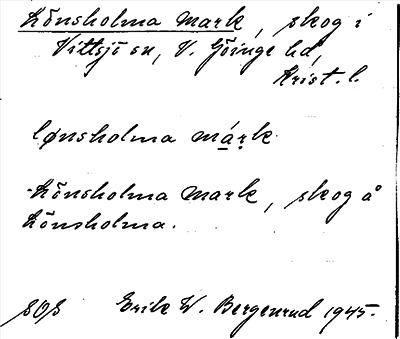 Lönsholma mark, skog i
Vittsjö sn, V. Göinge hd,
Krist. l.
lønsholma márk
Lönsholma mark, skog å
Lönsholma.
SOS Erik W. Bergenrud 1945.